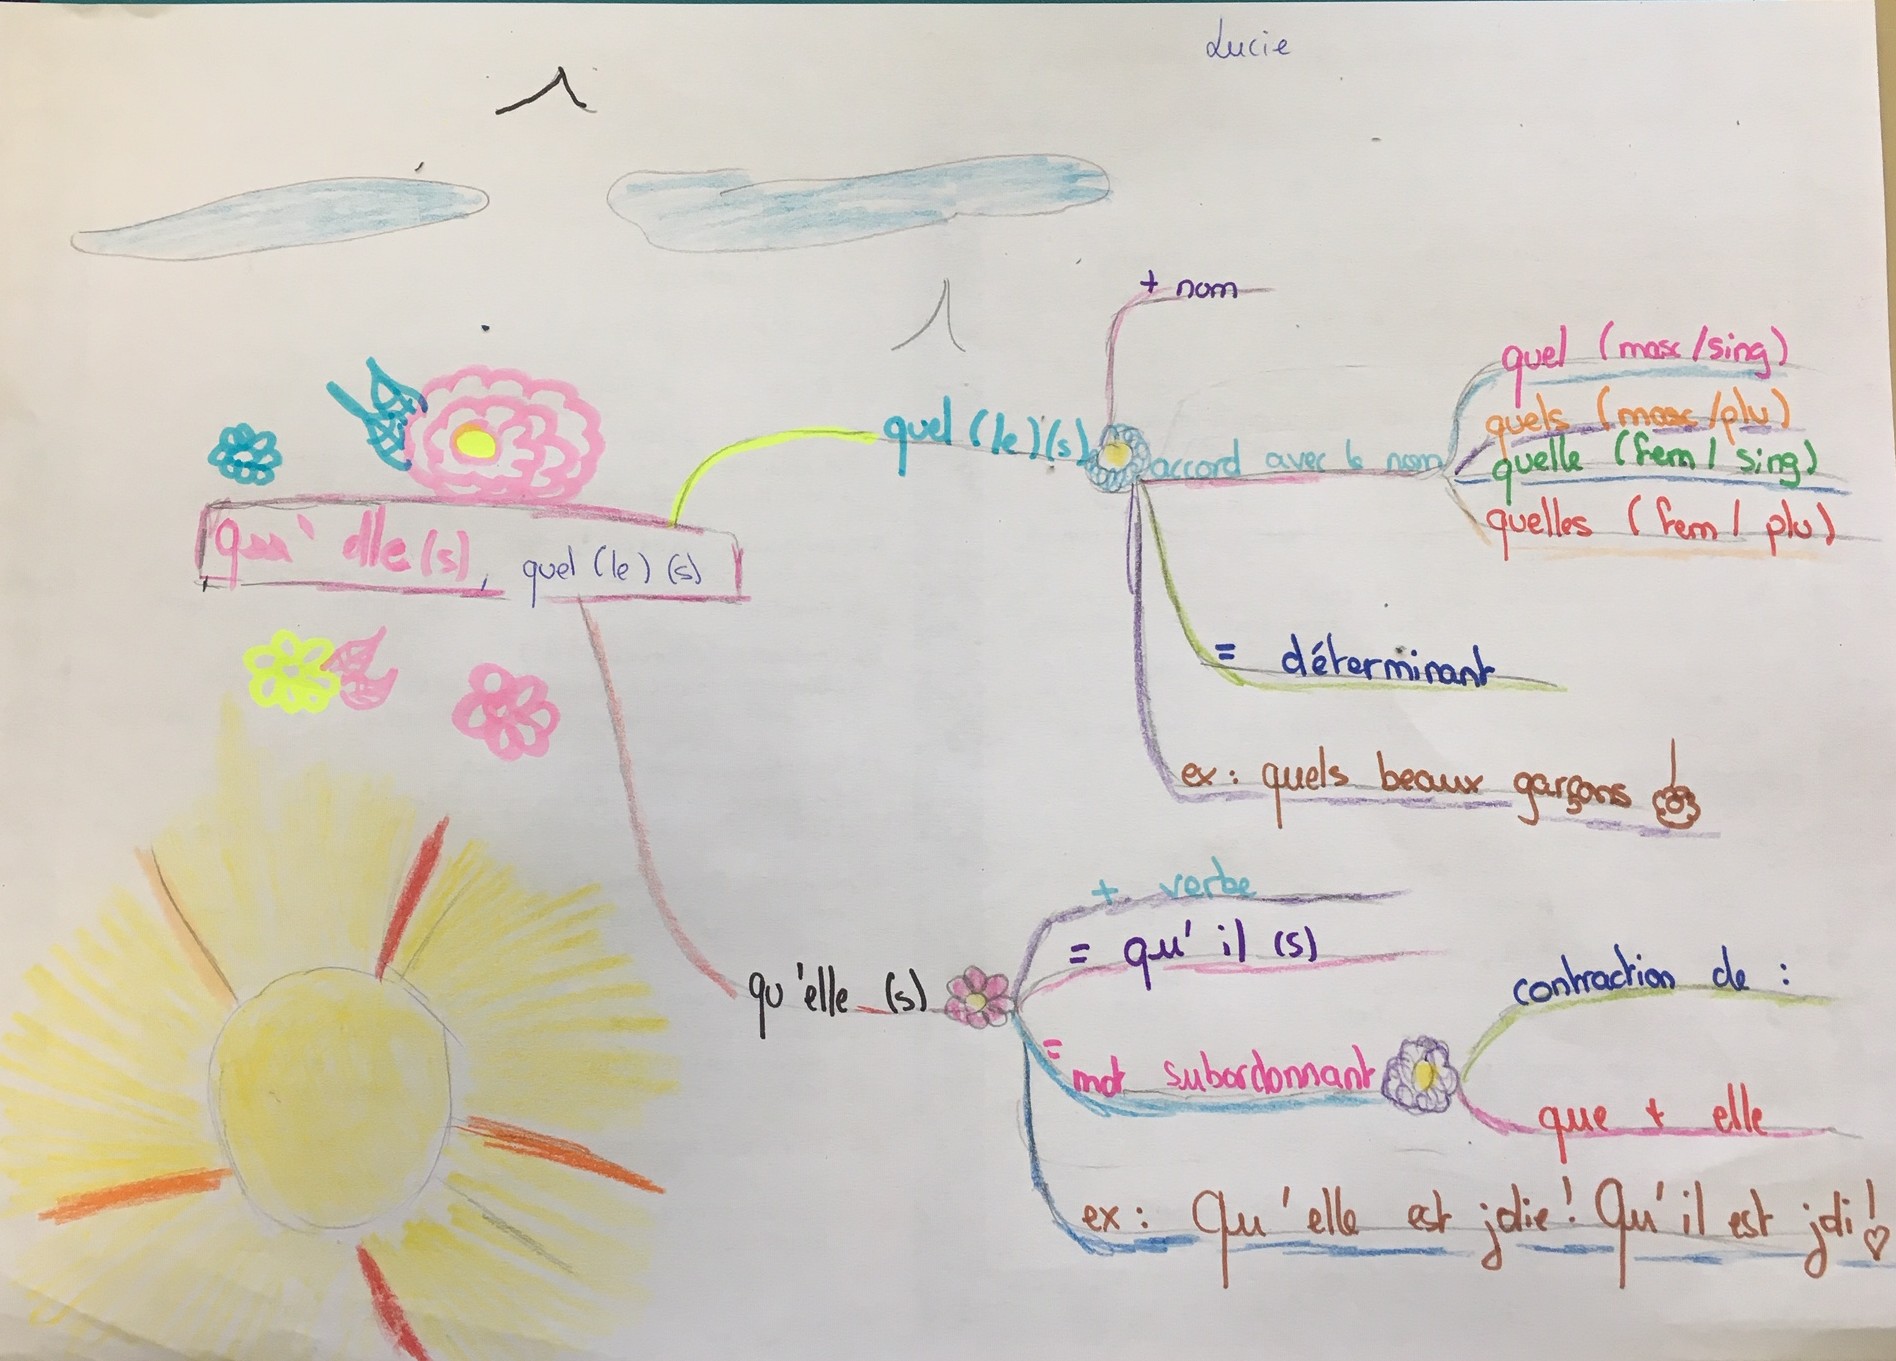 Lucie
qu'elle(s), quel(le)(s)
quel(le)(s)
+ nom
accord avec le nom
quel (masc/sing)
quels (masc/plu)
quelle (fem/sing)
quelles (fem/plu)
= déterminant
ex: quels beaux garçons
qu'elle (s)
+ verbe
= qu'il (s)
= mot subordonnant
contraction de :
que + elle
ex: Qu'elle est jolie! Qu'il est joli!